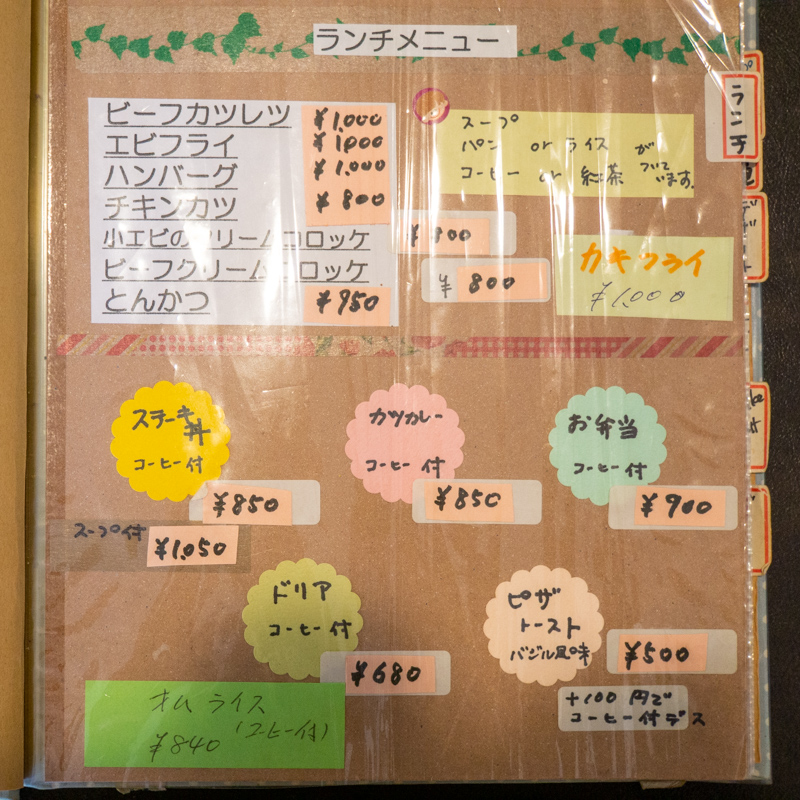 ランチメニュー
ランチ
ビーフカツレツ ¥1,000
エビフライ ¥1,000
ハンバーグ ¥1,000
チキンカツ ¥800
小エビのクリームコロッケ ¥800
ビーフクリームコロッケ ¥800
とんかつ ¥950
スープ
パン or ライス が
コーヒー or 紅茶 ついています。
カキフライ
¥1,000
ステーキ丼
コーヒー付
¥850
スープ付 ¥1,050
カツカレー
コーヒー付
¥850
お弁当
コーヒー付
¥900
ドリア
コーヒー付
¥680
ピザ
トースト
バジル風味
¥500
+100円で
コーヒー付デス
オムライス
(コーヒー付)
¥840